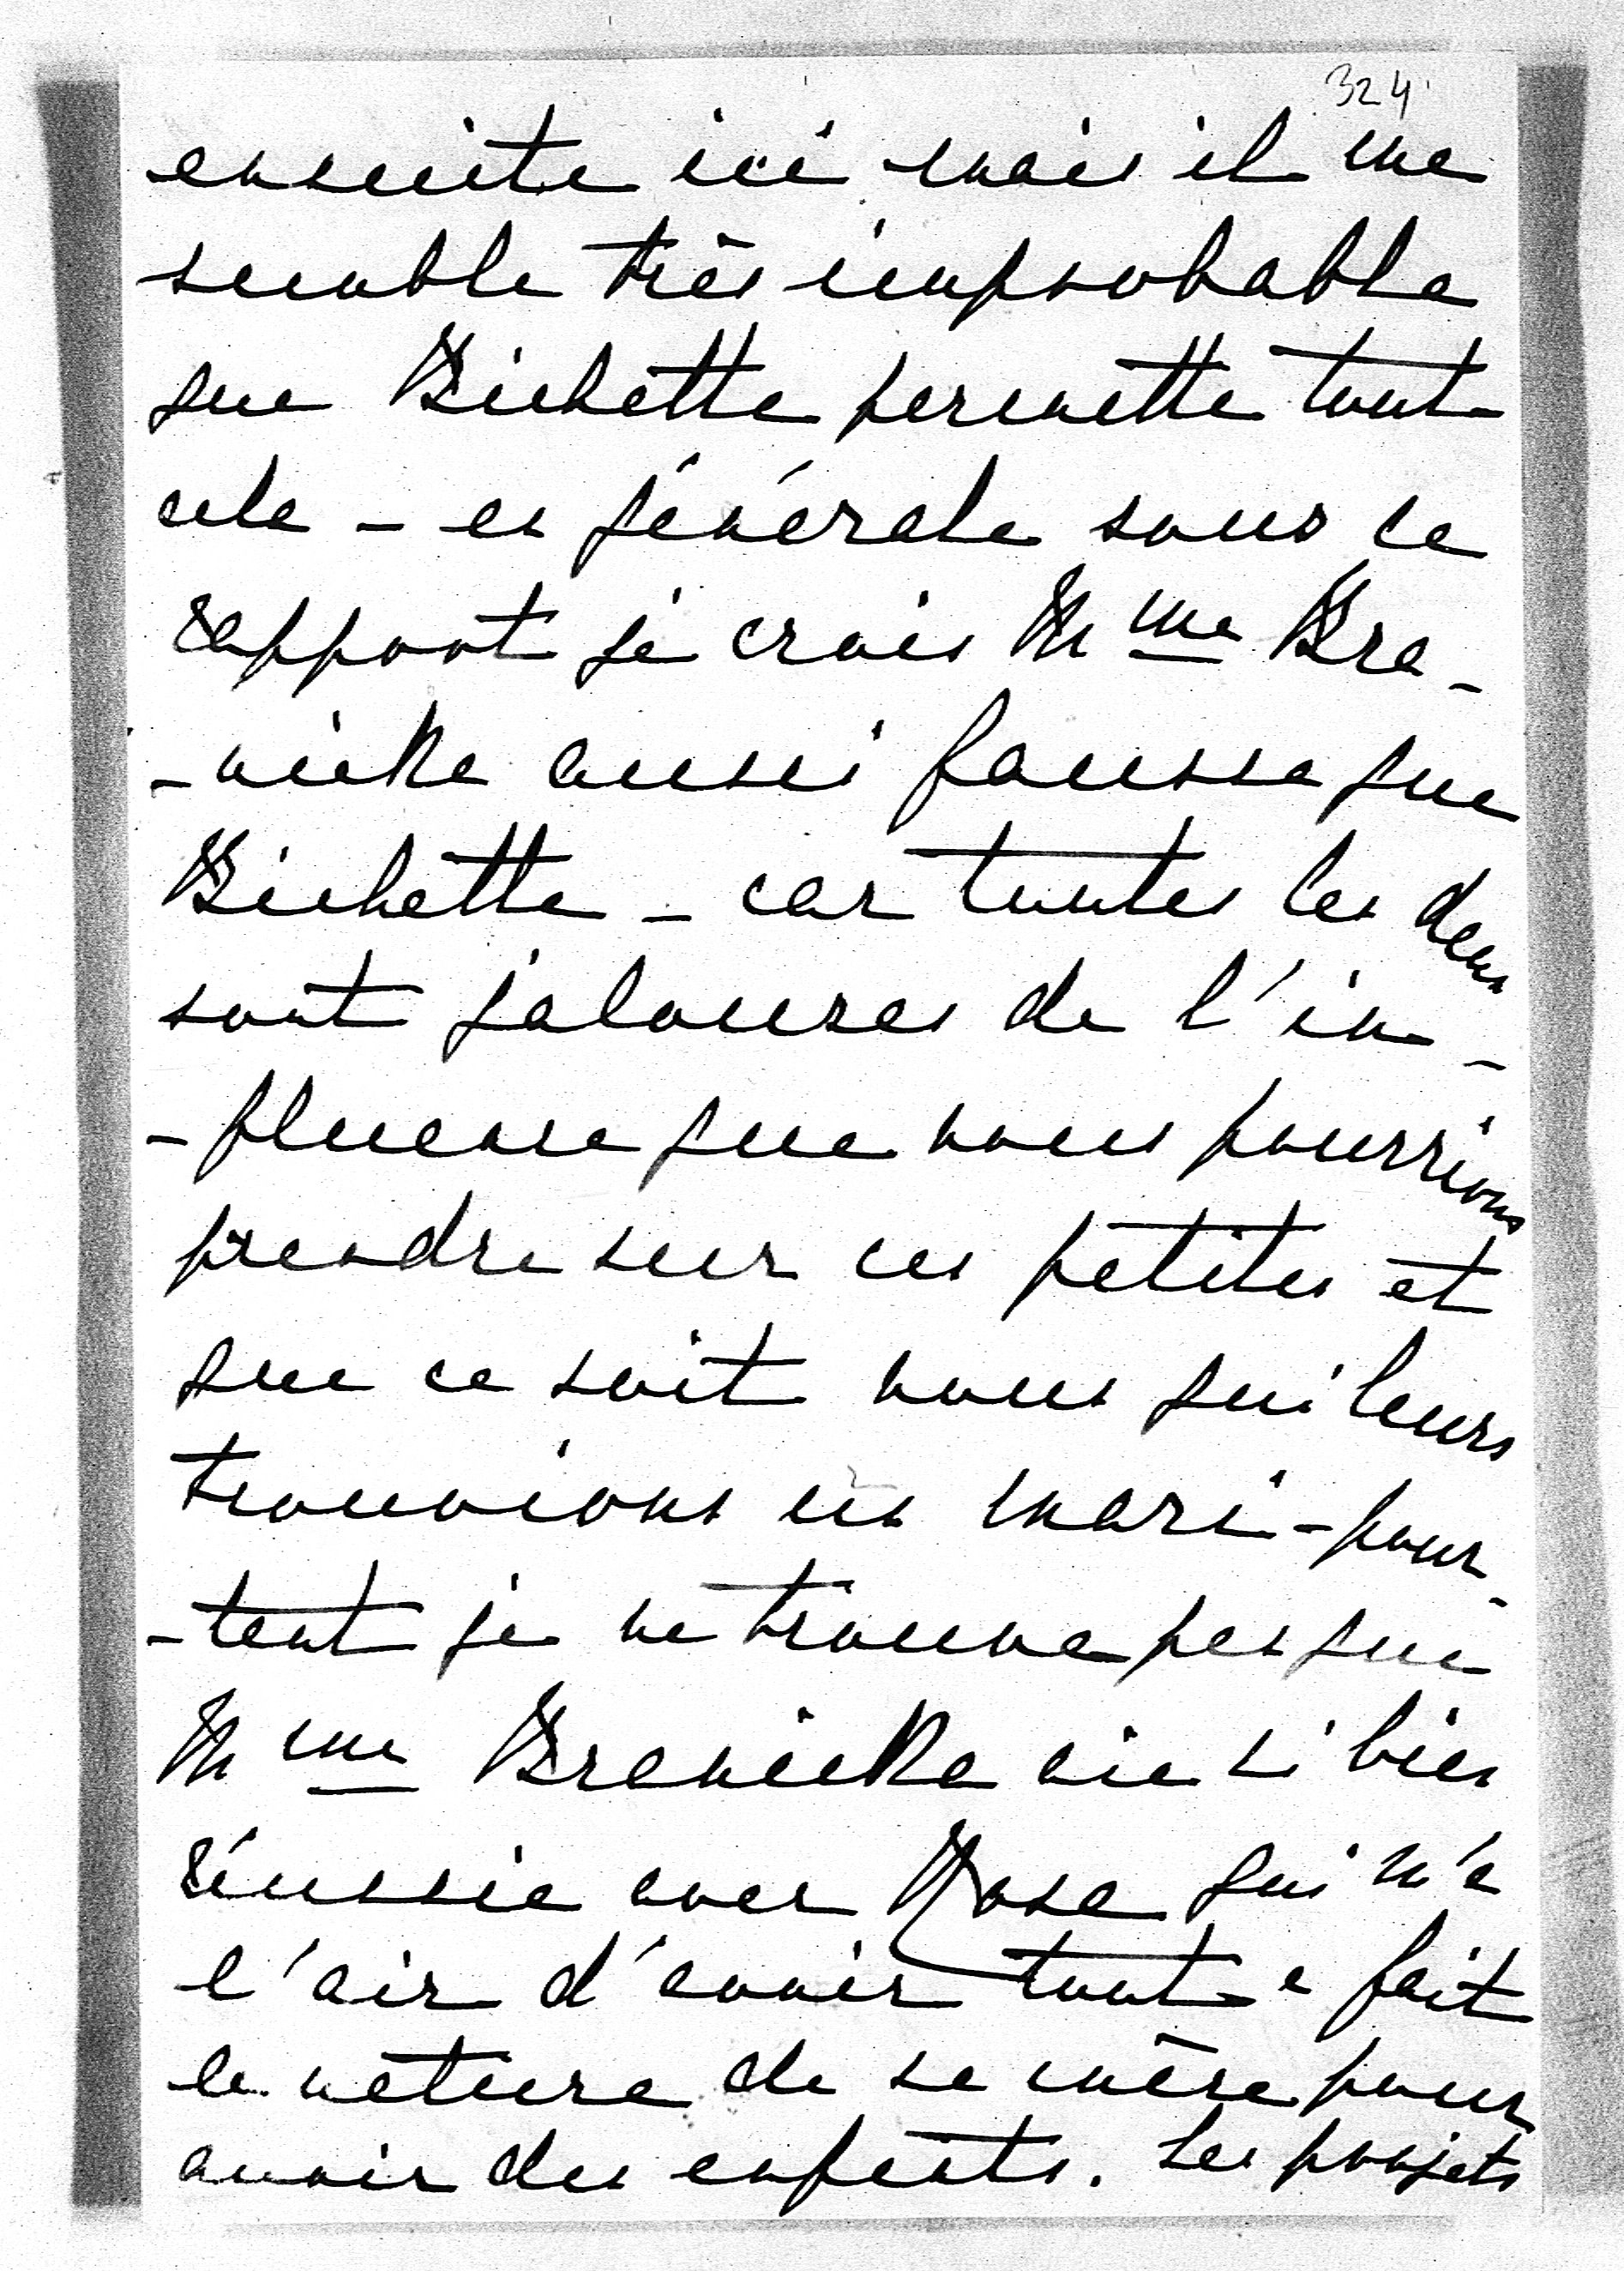 324
ensuite ici mais il me
semble très improbable
que Bichette permette tout
cela – en générale sous ce
rapport je crois Mme Bra-
-nicka aussi fausse que
Bichette – car toutes les deux
sont jalouses de l'in-
-fluence que nous pourrions
prendre sur ces petites et
que ce soit nous qui leurs
trouvions un mari – pour-
-tant je ne trouve pas que
Mme Branicka aie si bien
réussie avec Rose qui m'a
l'air d'avoir tout a fait
la nature de sa mère pour
avoir des enfants. Les projets